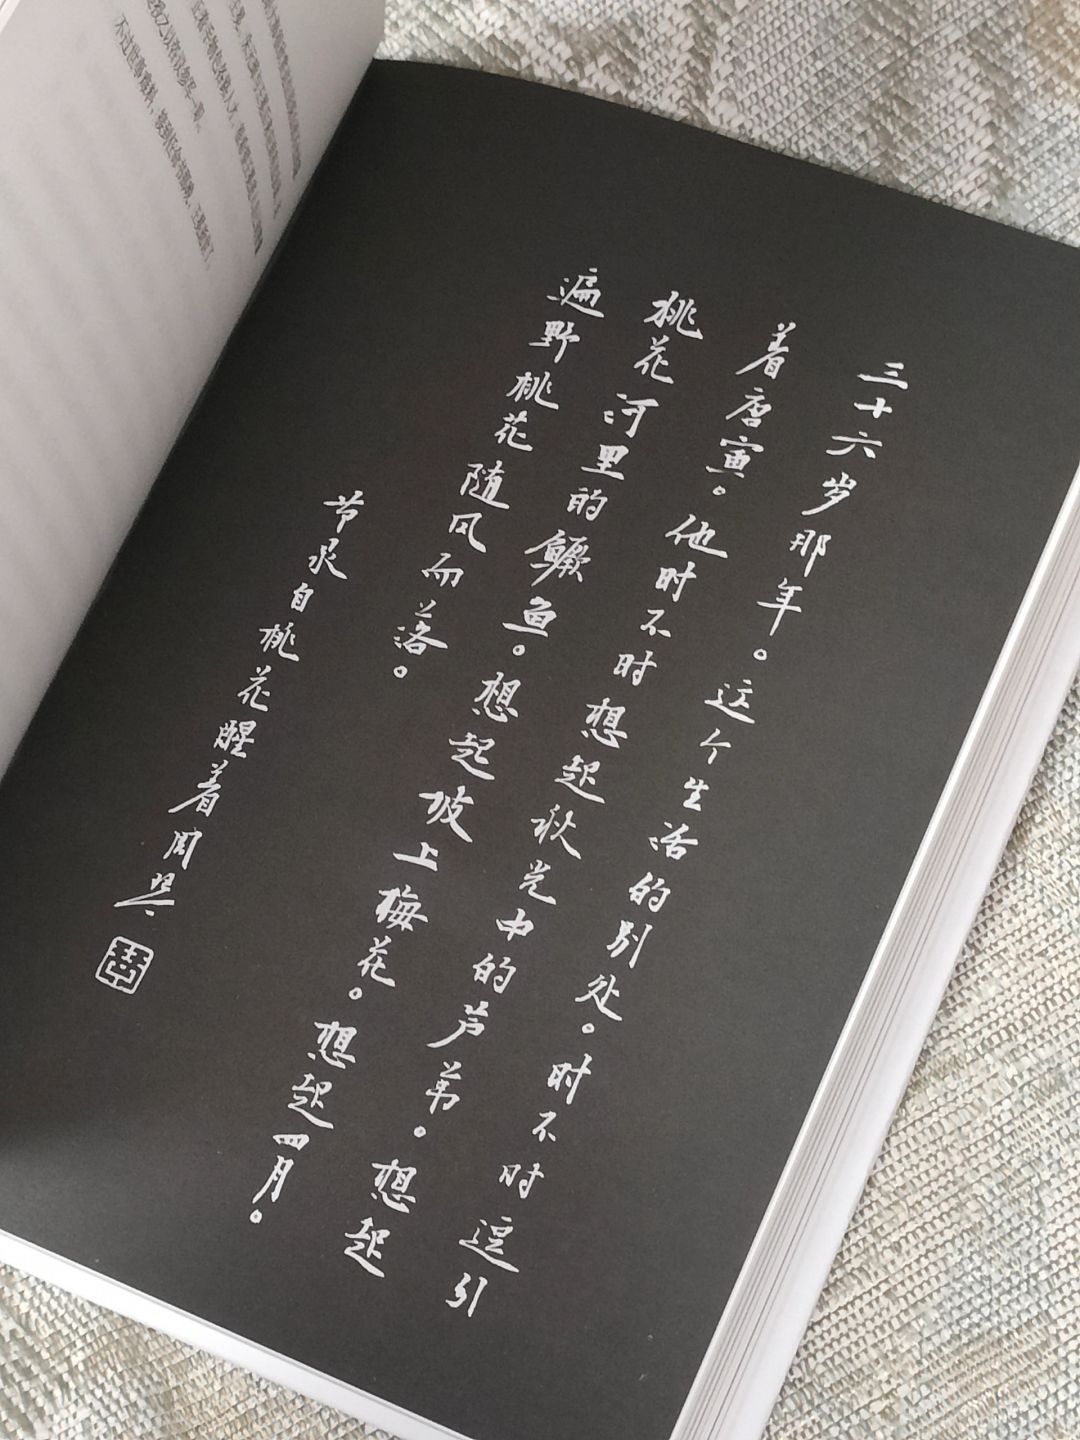 三十六岁那年。这个生活的别处。时不时逗引
着唐寅。他时不时想起秋光中的芦苇。想起
桃花河里的鳜鱼。想起坡上梅花。想起四月。
遍野桃花随风而落。
节录自桃花醒着周